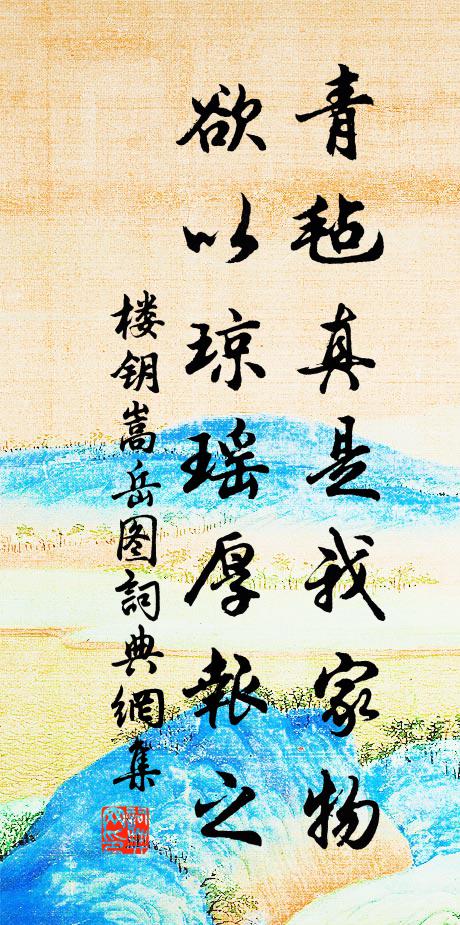 青毡真是我家物
欲以琼瑶厚报之
楼钥嵩岳图詞典網集